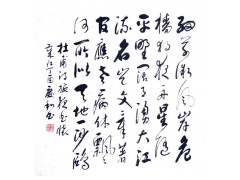 細草微風岸危
檣獨夜舟星垂
平野闊月湧大江
流名豈文章著
官應老病休飄飄
何所似天地一沙鷗
杜甫詩旅夜書懷